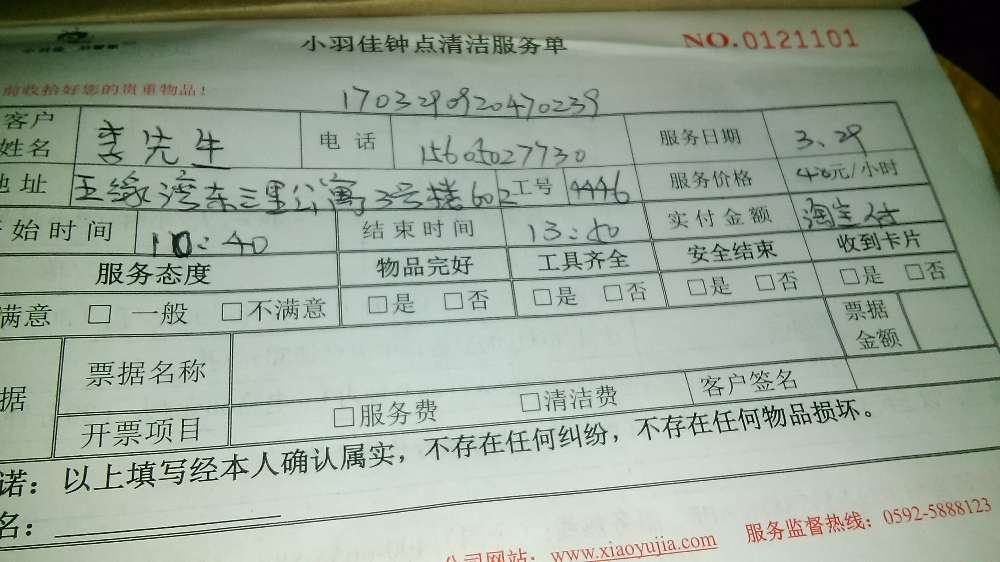 小羽佳钟点清洁服务单 NO.0121101
前收拾好您的贵重物品!
1703290920470239
客户姓名 李先生 电话 15605027730 服务日期 3.29
地址 五缘湾东三里公寓3号楼602 工号 4446 服务价格 40元/小时
开始时间 10:40 结束时间 13:50 实付金额 淘宝付
服务态度 物品完好 工具齐全 安全结束 收到卡片
满意 □ 一般 □不满意 □是 □否 □是 □否 □是 □否 □是 □否
据 票据名称 票据金额
开票项目 □服务费 □清洁费 客户签名
诺:以上填写经本人确认属实,不存在任何纠纷,不存在任何物品损坏。
名:
公司网站:www.xiaoyujia.com 服务监督热线:0592-5888123